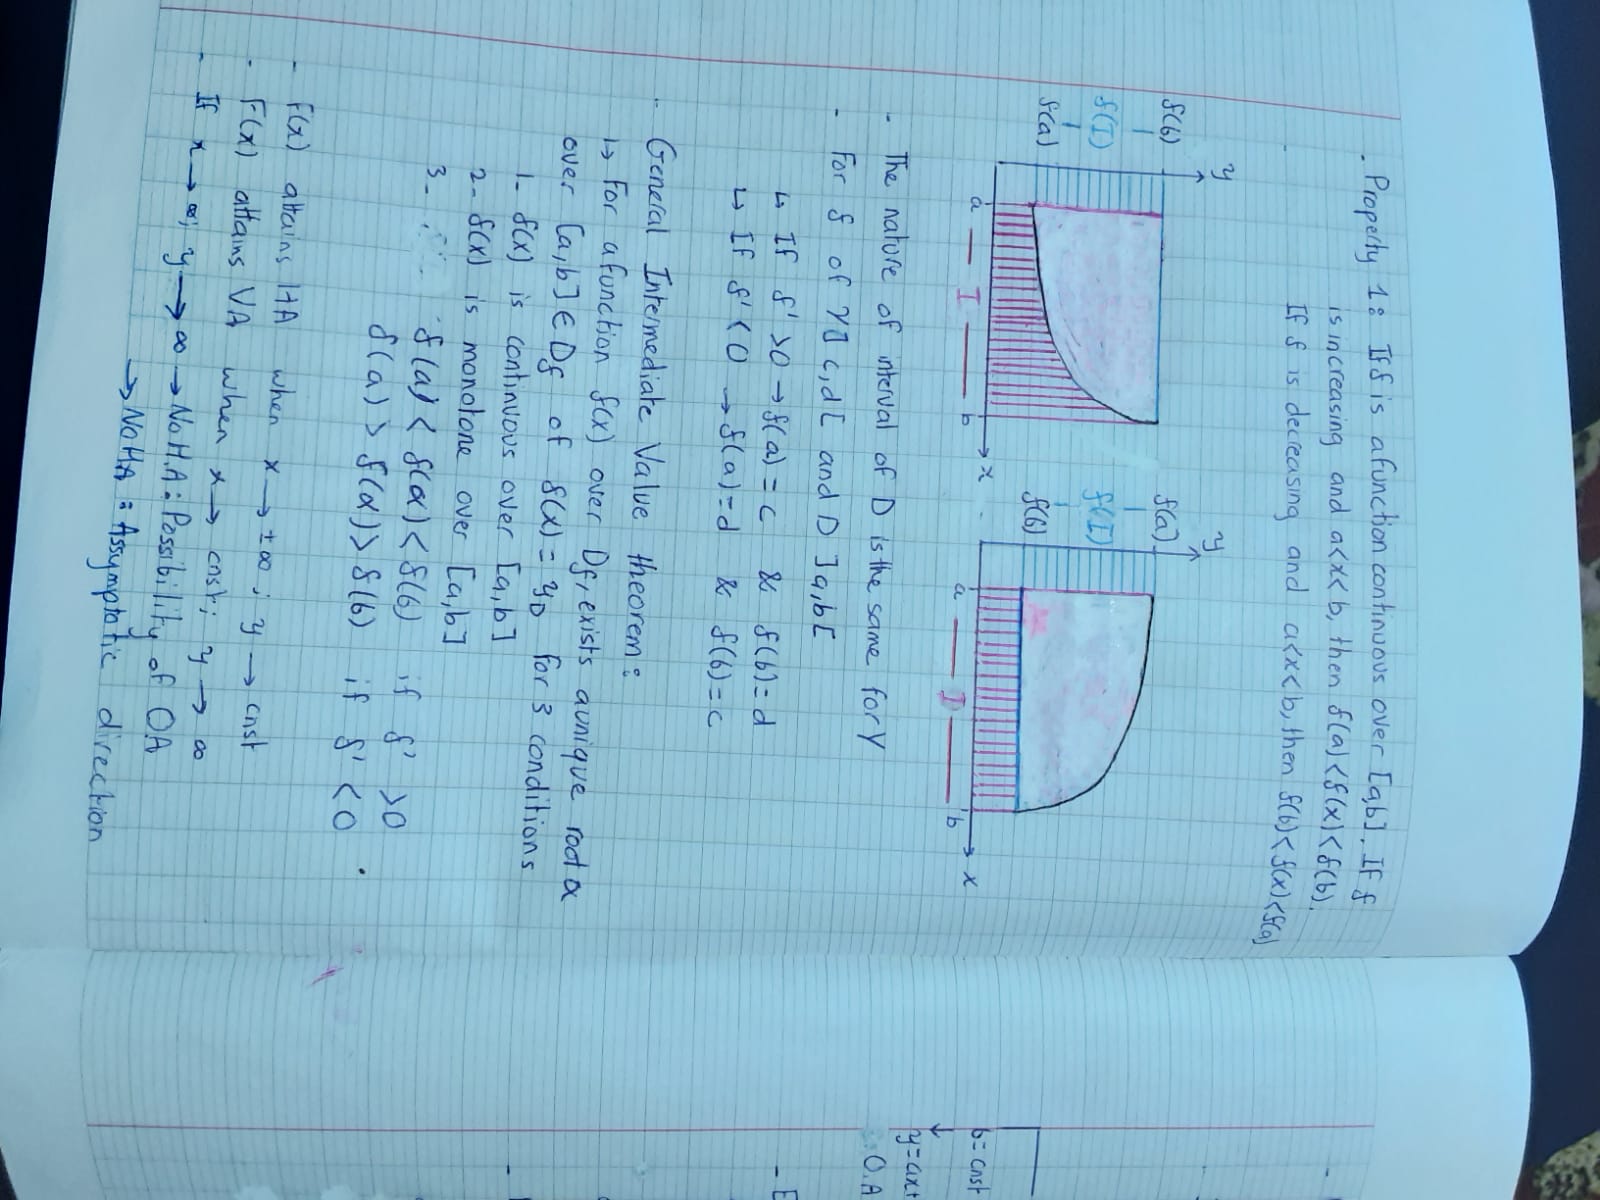 . Property 1: If f is a function continuous over [a,b]. If f
is increasing and a<x<b, then f(a)<f(x)<f(b).
If f is decreasing and a<x<b, then f(b)<f(x)<f(a)
y
f(b)
f(I)
f(a)
a
I
b
x
y
f(a)
f(I)
f(b)
a
I
b
x
- The nature of interval of D is the same for Y
- For f of Y ]c,d[ and D ]a,b[
↳ If f' >0 → f(a) = c & f(b)= d
↳ If f' < 0 → f(a)=d & f(b)=c
- General Intermediate Value theorem:
↳ For a function f(x) over Df, exists a unique root α
over [a,b] ∈ Df of f(x)= yD for 3 conditions
1- f(x) is continuous over [a,b]
2- f(x) is monotone over [a,b]
3- f(a) < f(α) < f(b) if f' >0
f(a) > f(α) > f(b) if f' <0
- F(x) attains HA when x → ±∞ ; y → cnst
- F(x) attains VA when x → cnst; y → ∞
- If x → ∞; y → ∞ → No H.A: Possibility of OA
→ No HA : Assymptotic direction
b= cnst
↓
y=ax+
: O.A
- E